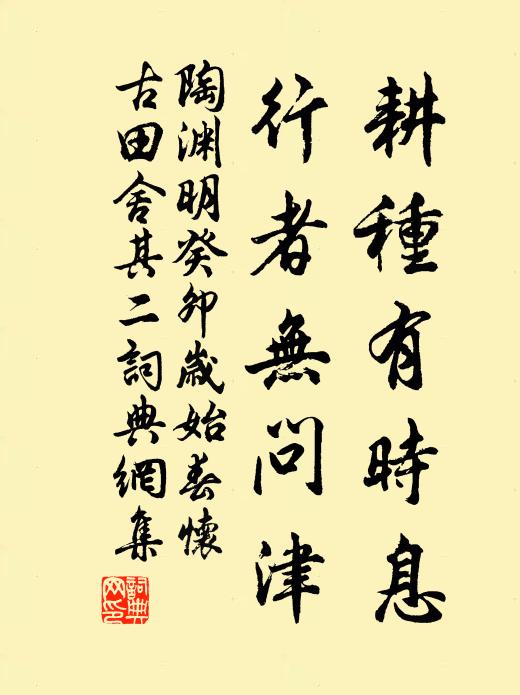 耕種有時息
行者無問津
陶淵明癸卯歲始春懷
古田舍其二詞典網集
詞典
网印